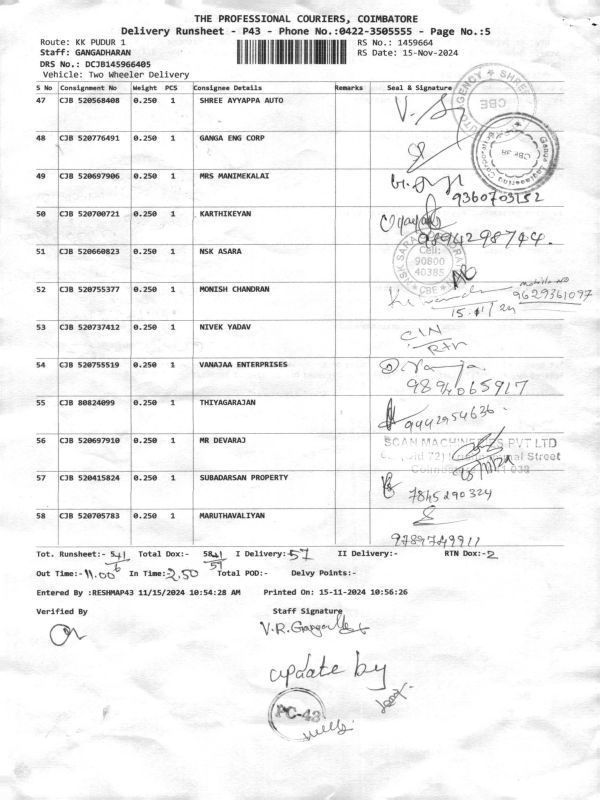 THE PROFESSIONAL COURIERS, COIMBATORE
Delivery Runsheet - P43 - Phone No.:0422-3505555 - Page No.:5
Route: KK PUDUR 1 RS No.: 1459664
Staff: GANGADHARAN RS Date: 15-Nov-2024
DRS No.: DCJB145966405
Vehicle: Two Wheeler Delivery
S No Consignment No Weight PCS Consignee Details Remarks Seal & Signature
47 CJB 520568408 0.250 1 SHREE AYYAPPA AUTO
AGENCY SHREE CBE
48 CJB 520776491 0.250 1 GANGA ENG CORP
49 CJB 520697906 0.250 1 MRS MANIMEKALAI
9360703152
50 CJB 520700721 0.250 1 KARTHIKEYAN
9894298744.
51 CJB 520660823 0.250 1 NSK ASARA
Cell:
90800
40385
CBE
52 CJB 520755377 0.250 1 MONISH CHANDRAN
9629361097
15.11/24
53 CJB 520737412 0.250 1 NIVEK YADAV C/N
Rtn
54 CJB 520755519 0.250 1 VANAJAA ENTERPRISES
9894065917
55 CJB 80824099 0.250 1 THIYAGARAJAN 9442954636.
56 CJB 520697910 0.250 1 MR DEVARAJ SCAN PVT LTD
Street
57 CJB 520415824 0.250 1 SUBADARSAN PROPERTY
7845290324
58 CJB 520705783 0.250 1 MARUTHAVALIYAN
9789749911
Tot. Runsheet:- Total Dox:- 58+1 I Delivery:-57 II Delivery:- RTN Dox:-2
59
Out Time:-11.00 In Time:-2.50 Total POD:- Delvy Points:-
Entered By :RESHMAP43 11/15/2024 10:54:28 AM Printed On: 15-11-2024 10:56:26
Verified By Staff Signature
update by
PC-43